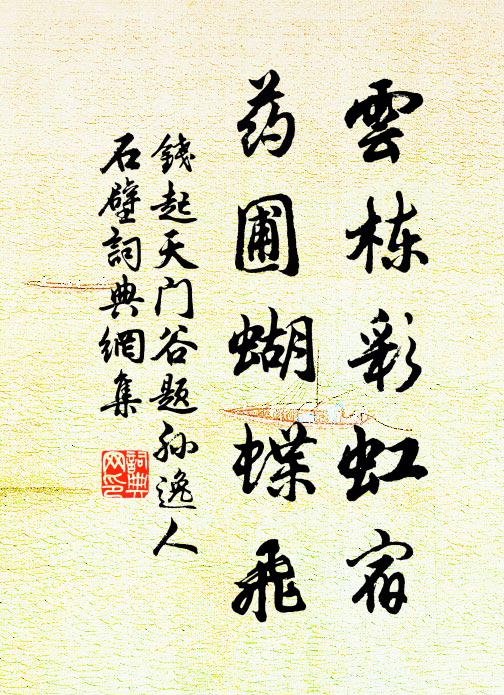 雲栋彩虹宿
药圃蝴蝶飛
錢起天门谷题孙逸人
石壁詞典網集
詞典
网印